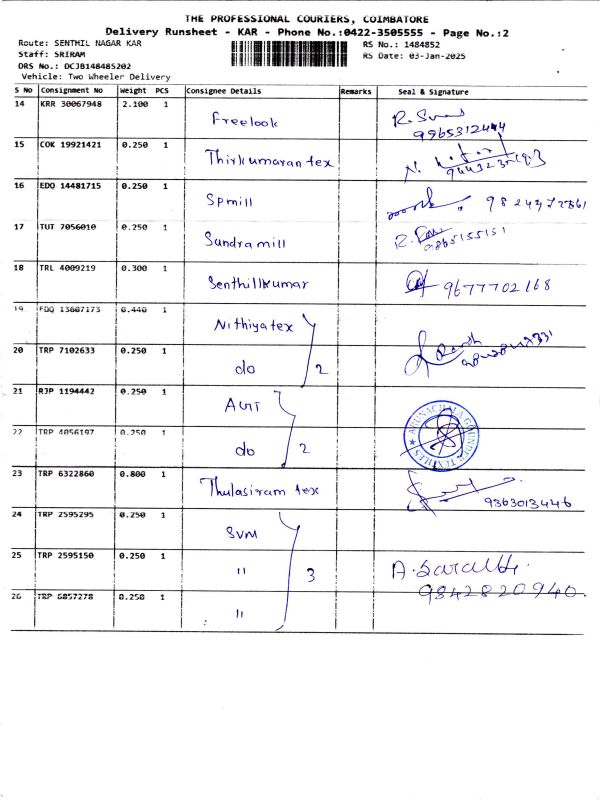 THE PROFESSIONAL COURIERS, COIMBATORE
Delivery Runsheet - KAR - Phone No.:0422-3505555 - Page No.:2
Route: SENTHIL NAGAR KAR
RS No.: 1484852
Staff: SRIRAM
RS Date: 03-Jan-2025
DRS No.: DCJB148485202
Vehicle: Two Wheeler Delivery
S No Consignment No Weight PCS Consignee Details Remarks Seal & Signature
14 KRR 30067948 2.100 1 Freelook R.
9965312444
15 COK 19921421 0.250 1 Thirkumaran tex N.
16 EDQ 14481715 0.250 1 Spmill
17 TUT 7056010 0.250 1 Sundra mill R.
9865155151
18 TRL 4009219 0.300 1 Senthillkumar 9677702168
19 FDQ 13607173 0.440 1 Nithiyatex
20 TRP 7102633 0.250 1 do 2
21 RJP 1194442 0.250 1 AGT ARUNACHALA GOUNDER TEXTILES
22 TRP 4056197 0.250 1 do 2
23 TRP 6322860 0.800 1 Thulasiram tex 9363013446
24 TRP 2595295 0.250 1 SVM
25 TRP 2595150 0.250 1 " 3 A.
9842820940.
26 TRP 6857278 0.250 1 "